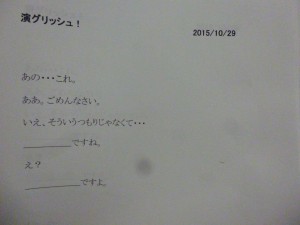 演グリッシュ！
2015/10/29
あの・・・これ。
ああ。ごめんなさい。
いえ、そういうつもりじゃなくて・・・
＿＿＿＿＿ですね。
え？
＿＿＿＿＿ですよ。